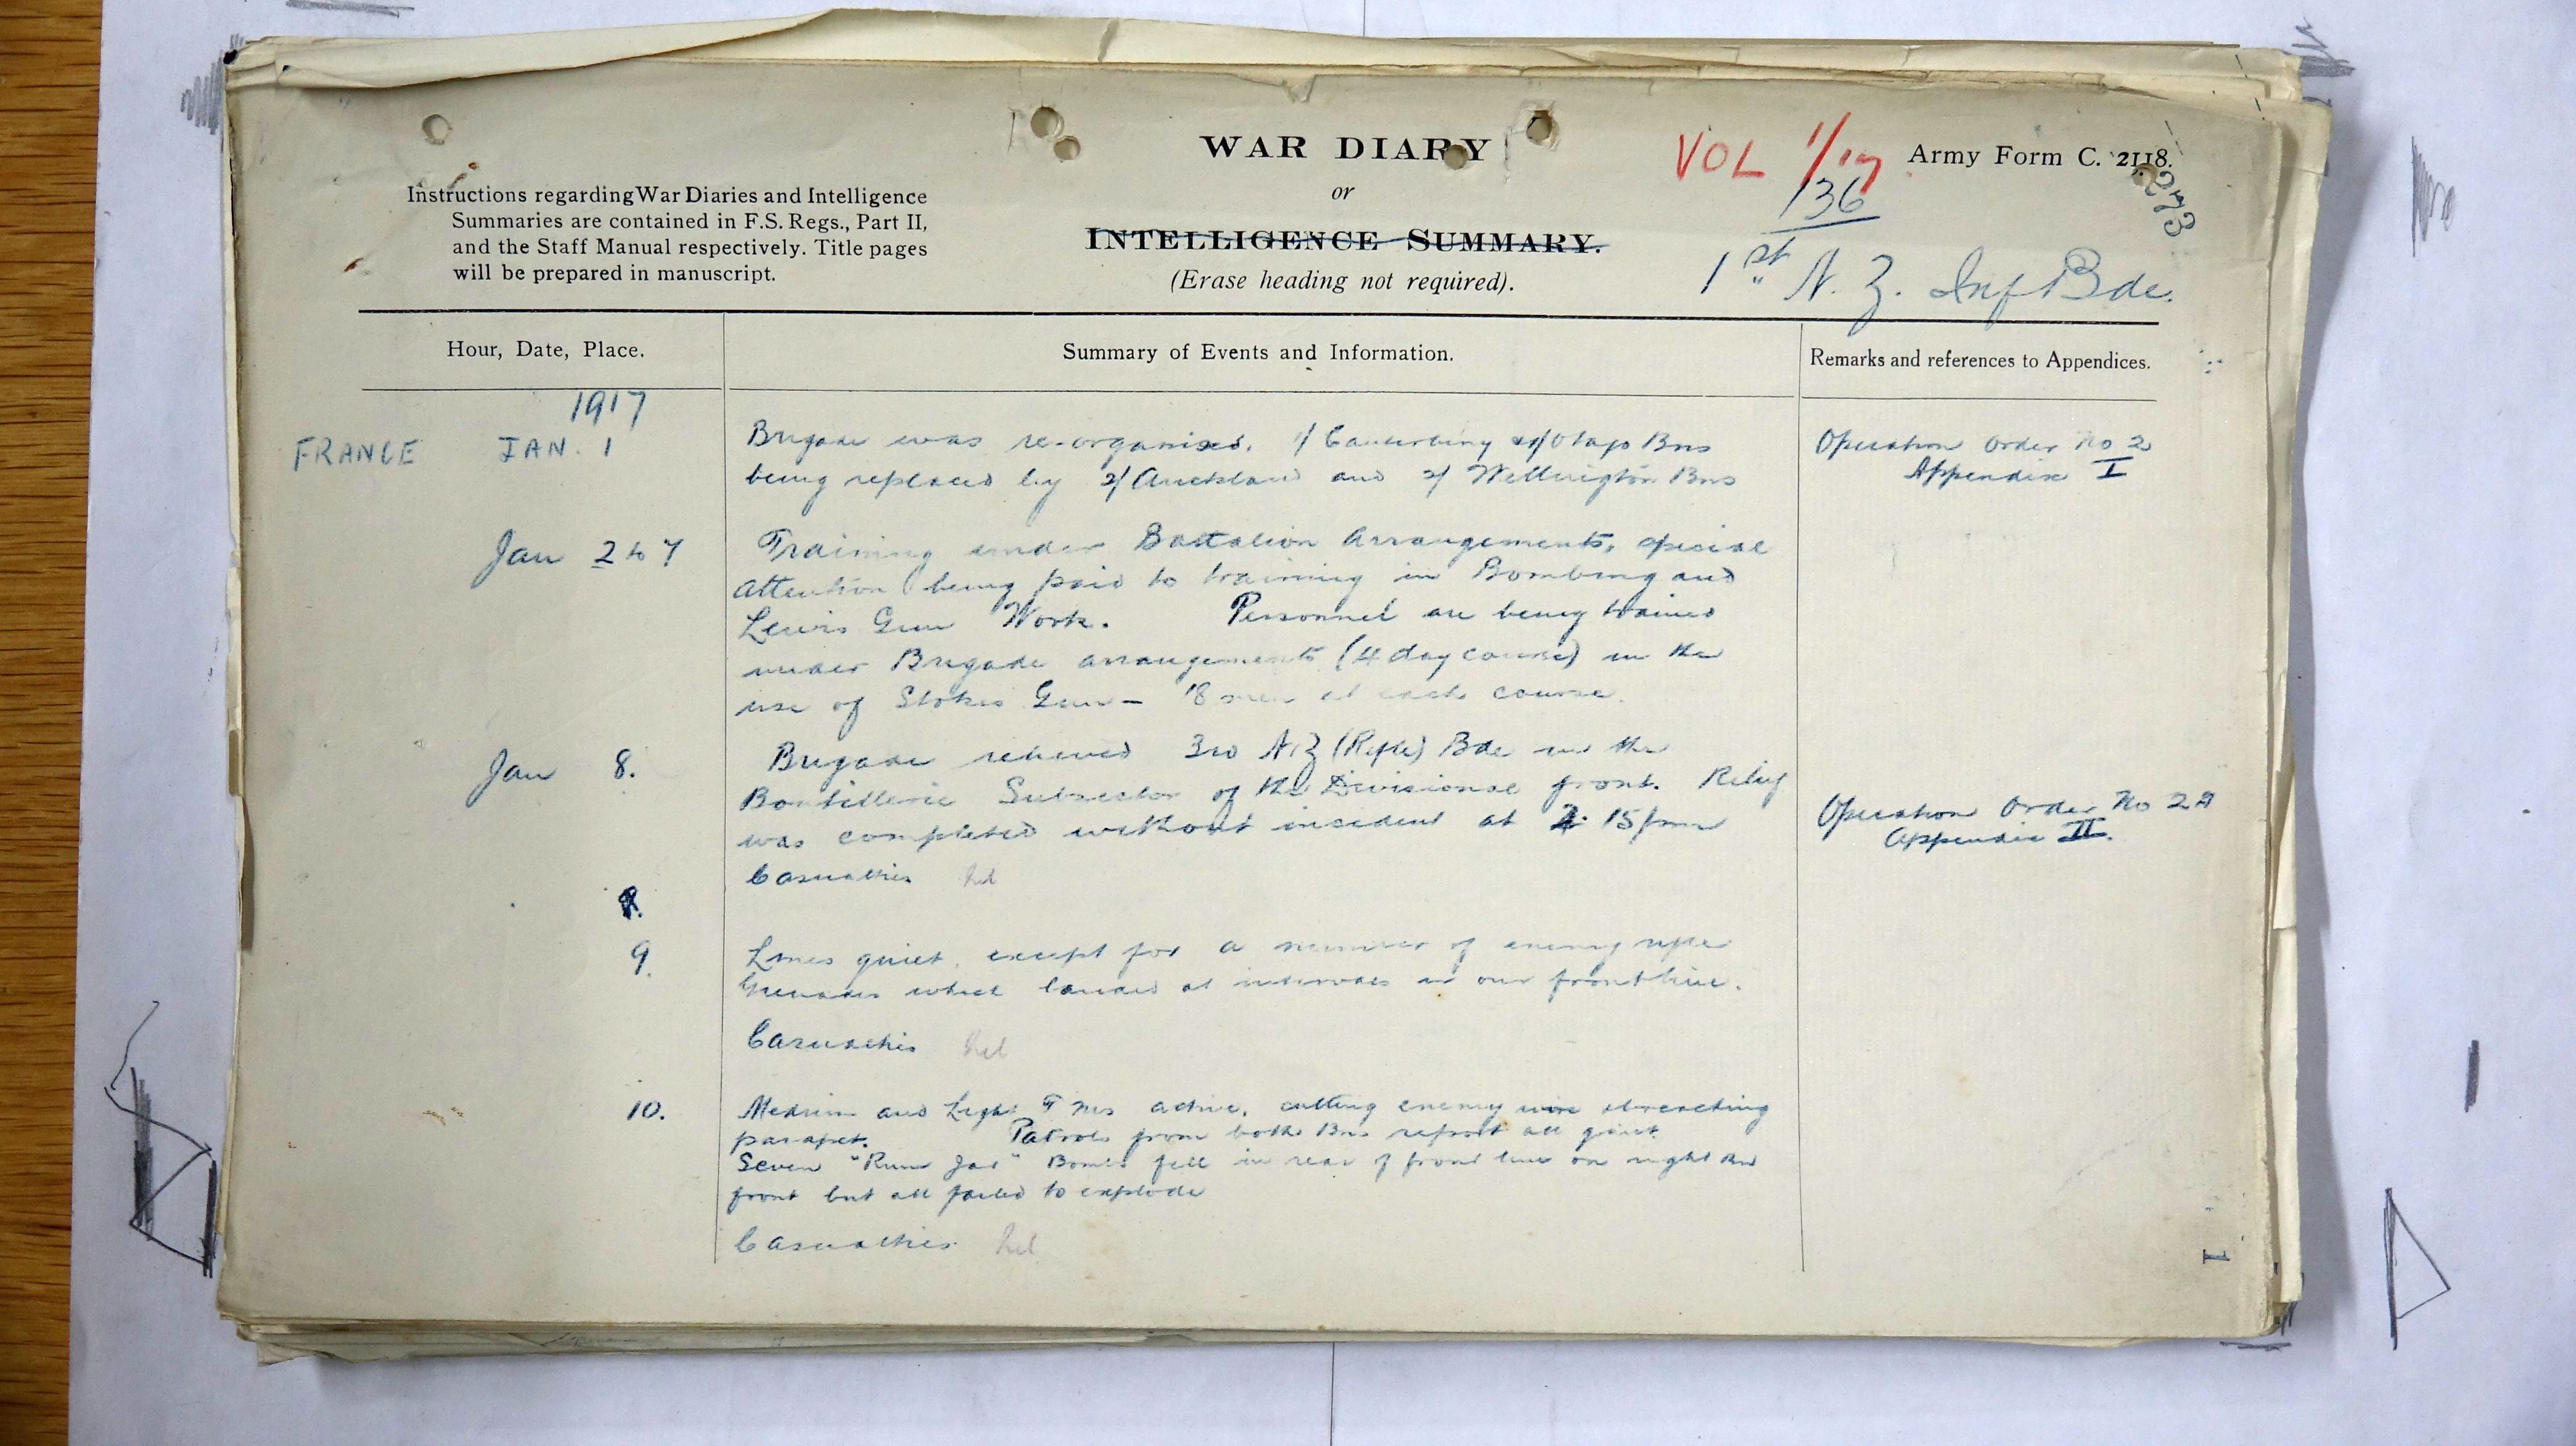 WAR DIARY
or
INTELLIGENCE SUMMARY.
(Erase heading not required).
Instructions regarding War Diaries and Intelligence
Summaries are contained in F.S. Regs., Part II,
and the Staff Manual respectively. Title pages
will be prepared in manuscript.
VOL 1/17
136
Army Form C. 2118.
273
1st N. Z. Inf Bde.
Hour, Date, Place.
Summary of Events and Information.
Remarks and references to Appendices.
1917
FRANCE JAN. 1
Brigade was re-organised. 1/ Canterbury Otago Bns
being replaced by 2/ Auckland and 2/ Wellington Bns
Operation Order No 2
Appendix I
Jan 2 to 7
Training under Battalion Arrangements, special
attention being paid to training in Bombing and
Lewis Gun Work. Personnel are being trained
under Brigade arrangements (4 day course) in the
use of Stokes Gun - 18 men at each course.
Jan 8.
Brigade relieved 3rd N.Z (Rifle) Bde in the
Boutillerie Subsector of the Divisional front. Relief
was completed without incident at 2.15 pm
Casualties nil
Operation Order No 22
Appendix II.
9.
Lines quiet, except for a number of enemy rifle
Grenades which landed at intervals in our frontline.
Casualties nil
10.
Medium and Light T Ms active, cutting enemy wire breaching
parapet. Patrols from both Bns report all quiet.
Seven "Rum Jar" Bombs fell in rear of front line on right Bn
front but all failed to explode
Casualties nil
1